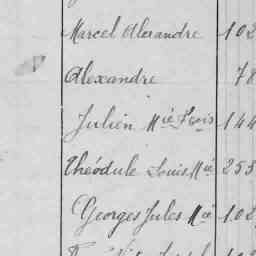 Marcel Alexandre 102
Alexandre 78
Julien Mie Fçois 144
Théodule Louis Mie 253
Georges Jules Mie 102